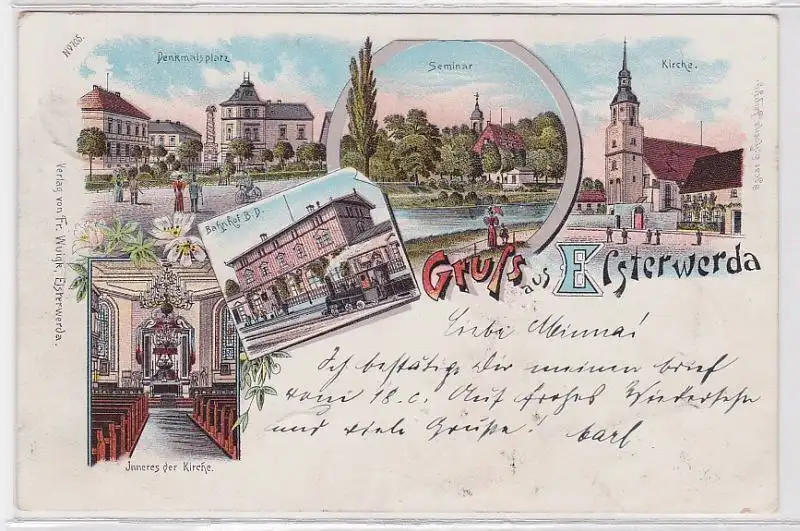 No 765.
Denkmalsplatz
Seminar
Kirche.
Bahnhof B.D.
Gruss aus Elsterwerda
Verlag von Fr. Wuigk, Elsterwerda.
Inneres der Kirche.
Liebe Minna!
Ich bestätige Dir meinen brief
vom 18. c. Auf frohes Wiedersehn
und viele Grüße! Carl